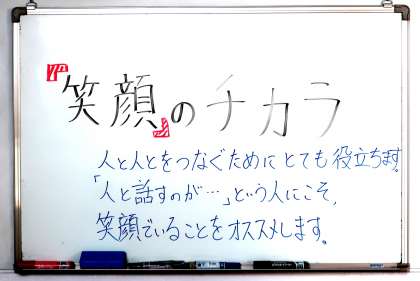 『笑顔』のチカラ
人と人とをつなぐためにとても役立ちます。
「人と話すのが…」という人にこそ、
笑顔でいることをオススメします。